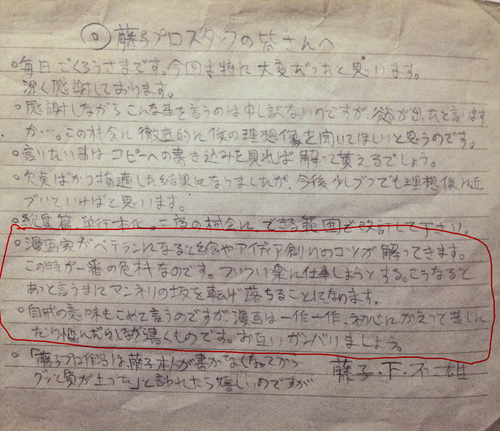 ◎藤子プロスタッフの皆さんへ
○毎日ごくろうさまです。今回は特に大変だったと思います。
深く感謝しております。
○感謝しながらこんな事を言うのは申し訳ないのですが、欲が出たと言いますか…。この機会に徹底的に僕の理想像を聞いてほしいと思うのです。
○言いたい事はコピーへの書き込みを見れば解って貰えるでしょう。
○欠点ばかり指適した結果になりましたが、今後少しづつでも理想像に近
づいていければと思います。
○総集篇、単行本化、二度の機会にできる範囲で改訂して下さい。
○漫画家がベテランになると絵やアイディア創りのコツが解ってきます。
この時が一番の危機なのです。ついつい楽に仕事しようとする。こうなると
あっと言うまにマンネリの坂を転げ落ちることになります。
○自戒の意味もこめて言うのですが、漫画は一作一作、初心にかえって苦しん
だり悩んだりしながら書くものです。お互いガンバリましょう。
○「藤子プロ作品は藤子本人が書かなくなってから
グッと質が上った」と言われたら嬉しいのですが
藤子・F・不二雄